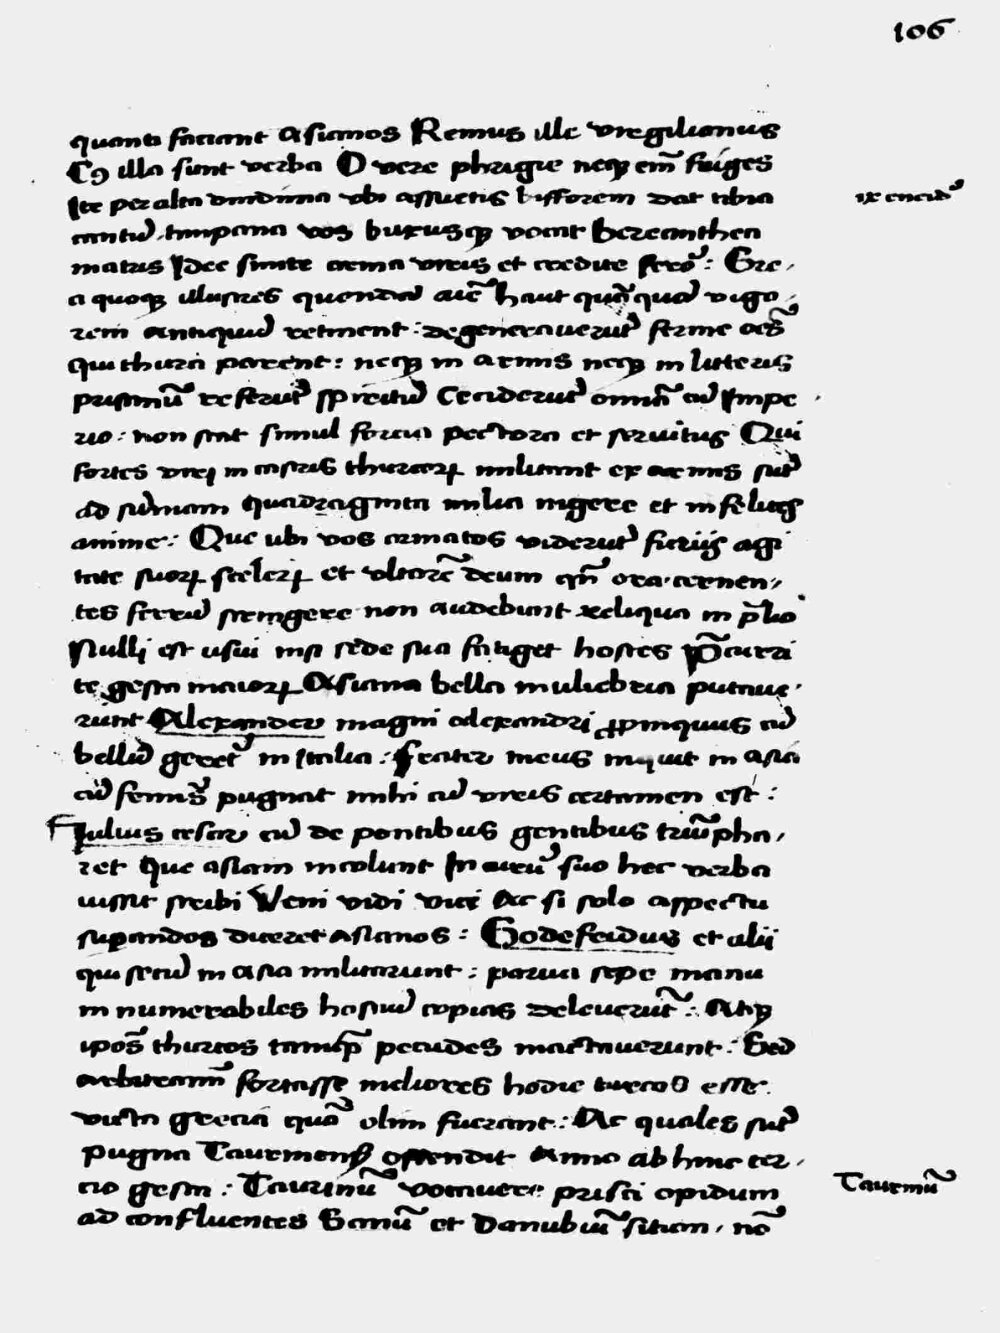 106
quanti faciant Asianos Remus ille virgilianus
Cꝰ illa sunt verba O vere phrigie neqꝫ em̄ friges
Ite per alta dindima vbi assuetis bifforem dat tibia
ix eneid̾
cantū. timpana vos buxusqꝫ vocat berecinthea
matris Idee sinite arma viris et cedite ferrō: Gre-
ci quoqꝫ illustres quondā aīe haut quāquā vigo-
rem antiquū retinent: degenerauerūt ferme oēs
qui thurci parent: neqꝫ in armis neqꝫ in litteris
pristinū referūt spiritū Ceciderūt omnīa cū Impe
rio: non stat simul forcia pectora et seruitus Qui
fortes viri in castris thurcoꝝ militant ex armis sūt
ad sūmam Quadraginta milia nigere et infelices
anime: Que ubi vos armatos viderūt furiis agi
tate suoꝝ sceleꝝ et vltorē deum qn̄ ora cernen-
tes ferrū stringere non audebunt reliqua in p̄lio
Nulli est usui nisi cede sua fatiget hostes P̄curri
te gesta maioꝝ Asiana bella muliebria putaue-
runt Alexander magni alexandri ꝓpinquus cū
bellū gereret in Italia: frater meus inquit in asia
cū feminis pugnat mihi cū viris certamen est:
Iulius cesar cū de pontibus gentibus triūpha-
ret Que asiam incolunt In curru suo hec verba
iussit scribi Veni vidi vici Ac si solo aspectu
suꝑandos diceret Asianos: Godefridus et alii
qui secū in asia militarunt: parua sepe manu
in numerabiles hostiū copias deleuerūt: Atqꝫ
ipōs thurcos tamqꝫ pecudes mactauerunt: Sed
arbitramī fortasse meliores hodie turcos esse
victa grecia quā olim fuerant: Ac quales sūt
pugna Taurinensis ostendit Anno ab hinc ter-
cio gesta: Taurinū vocauere prisci opidum
Taurinū
ad confluentes Sauū et Danubiū sitam. nō